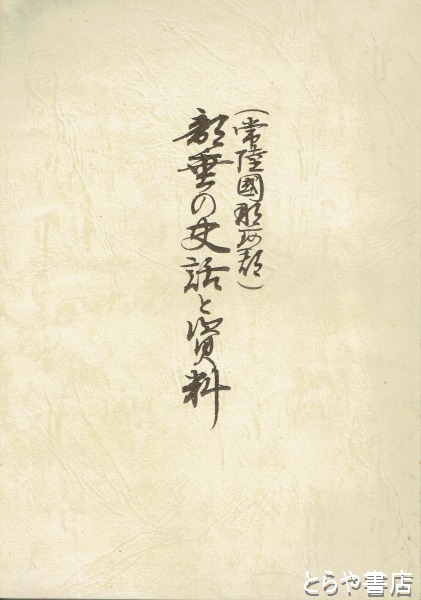 (常陸國那珂郡)
部垂の史話と資料
とらや書店